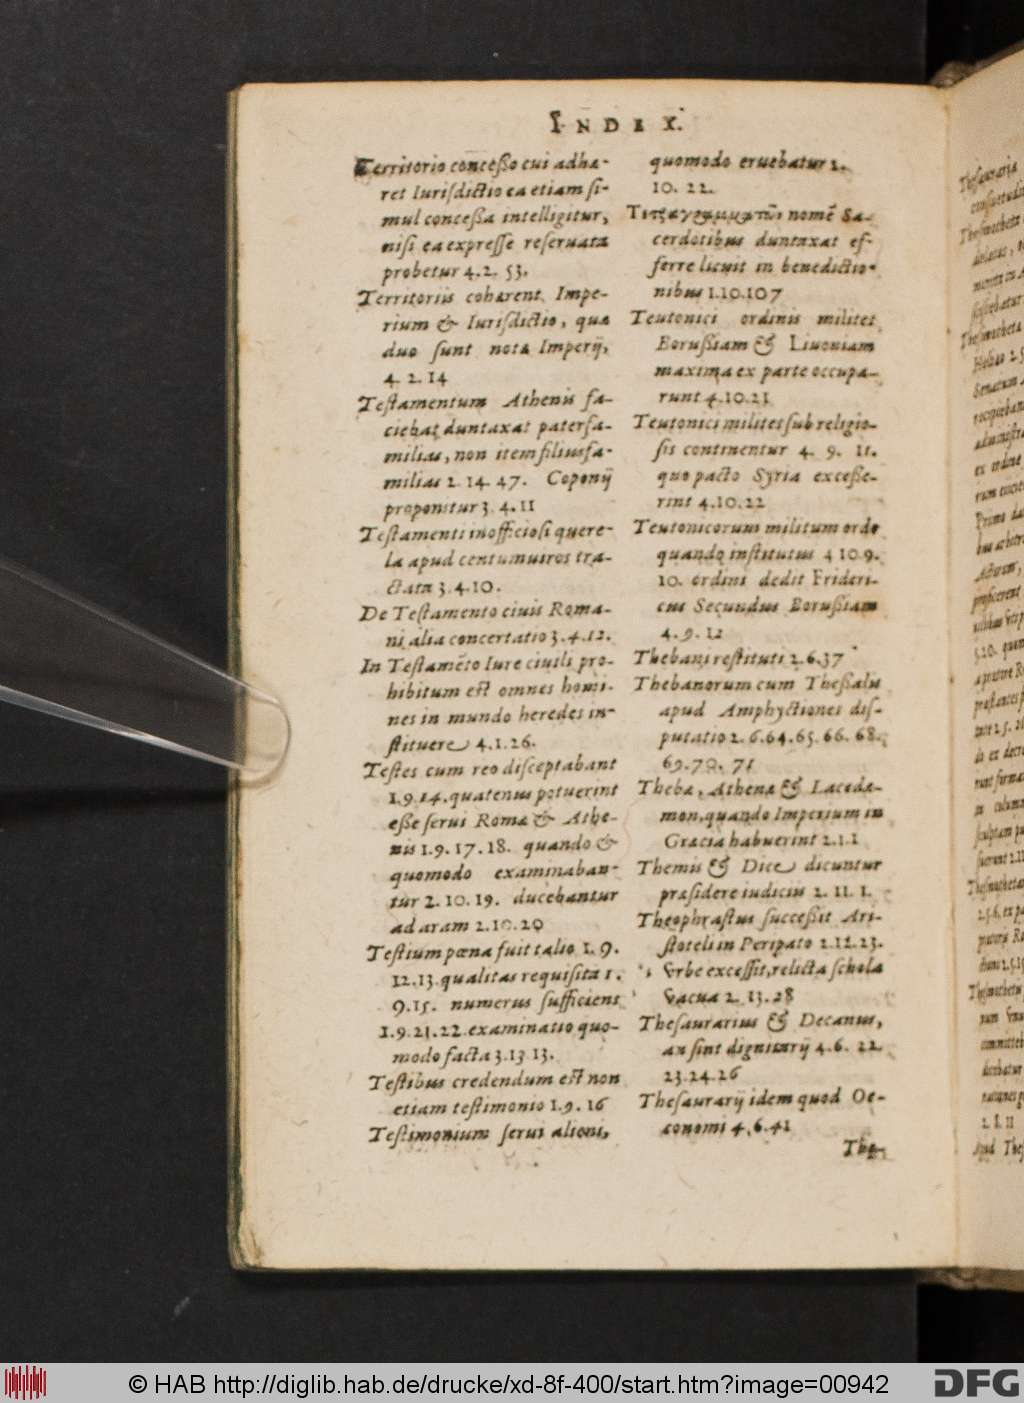 INDEX.
Territorio conceßo cui adhæ-
ret Iurisdictio ea etiam si-
mul conceßa intelligitur,
nisi ea expresse reseruata
probetur 4. 2. 53.
Territoriis coharent Impe-
rium & Iurisdictio, quæ
duo sunt nota Imperij,
4. 2. 14
Testamentum Athenis fa-
ciebat duntaxat paterfa-
milias, non item filiusfa-
milias 2. 14. 47. Coponij
proponitur 3. 4. 11
Testamenti inofficiosi quere-
la apud centumuiros tra-
ctata 3. 4. 10.
De Testamento ciuis Roma-
ni alia concertatio 3. 4. 12.
In Testamēto Iure ciuili pro-
hibitum est omnes homi-
nes in mundo heredes in-
stituere 4. 1. 26.
Testes cum reo disceptabant
1. 9. 14. quatenus potuerint
eße serui Romæ & Athe-
nis 1. 9. 17. 18. quando &
quomodo examinaban-
tur 2. 10. 19. ducebantur
ad aram 2. 10. 20
Testium pœna fuit talio 1. 9.
12. 13. qualitas requisita 1.
9. 15. numerus sufficiens
1. 9. 21. 22. examinatio quo-
modo facta 3. 13 13.
Testibus credendum est non
etiam testimonio 1. 9. 16
Testimonium serui alieni,
quomodo eruebatur 2.
10. 22.
nomē Sa-
cerdotibus duntaxat ef-
ferre licuit in benedictio-
nibus 1. 10. 107
Teutonici ordinis milites
Borußiam & Liuoniam
maxima ex parte occupa-
runt 4. 10. 21
Teutonici milites sub religio-
sis continentur 4. 9. 11.
quo pacto Syria exceße-
rint 4. 10. 22
Teutonicorum militum ordo
quando institutus 4 10. 9.
10. ordini dedit Frideri-
cus Secundus Borußiam
4. 9. 12
Thebani restituti 2. 6. 37
Thebanorum cum Theßalis
apud Amphyctiones dis-
putatio 2. 6. 64. 65. 66. 68.
69. 70. 71
Thebæ, Athenæ & Lacedæ-
mon, quando Imperium in
Græcia habuerint 2. 1. 1
Themis & Dice dicuntur
præsidere iudiciis 2. 11. 1.
Theophrastus succeßit Ari-
stoteli in Peripato 2. 12. 23.
Vrbe excessit, relicta schola
vacua 2. 13. 28
Thesaurarius & Decanus,
an sint dignitarij 4. 6. 22.
23. 24. 26
Thesaurarij idem quod Oe-
conomi 4. 6. 41
The-
© HAB http://diglib.hab.de/drucke/xd-8f-400/start.htm?image=00942
DFG